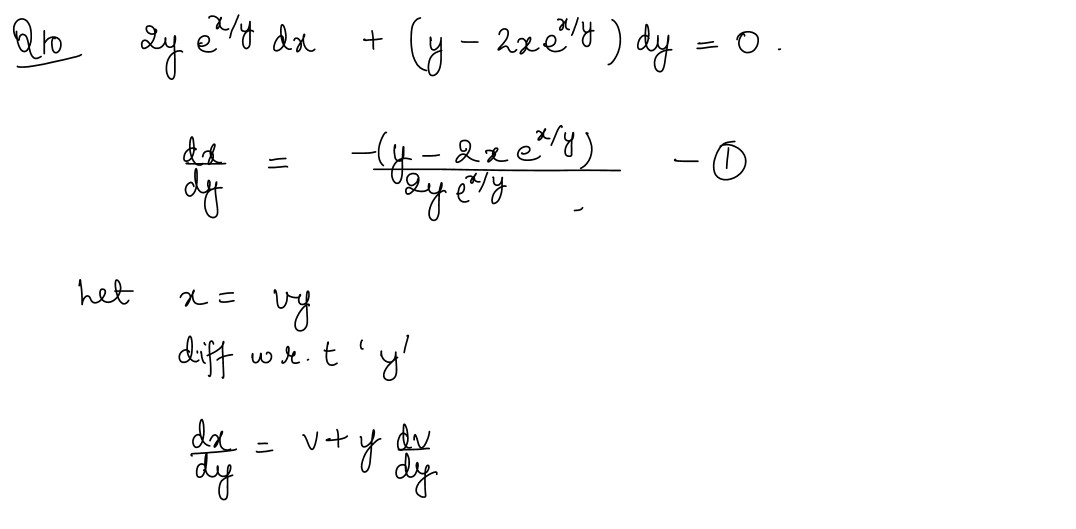 Q10 2y e^{x/y} dx + (y - 2x e^{x/y}) dy = 0.
dx/dy = -(y - 2x e^{x/y}) / 2y e^{x/y} - ①
Let x = vy
diff w.r.t 'y'
dx/dy = v + y dv/dy